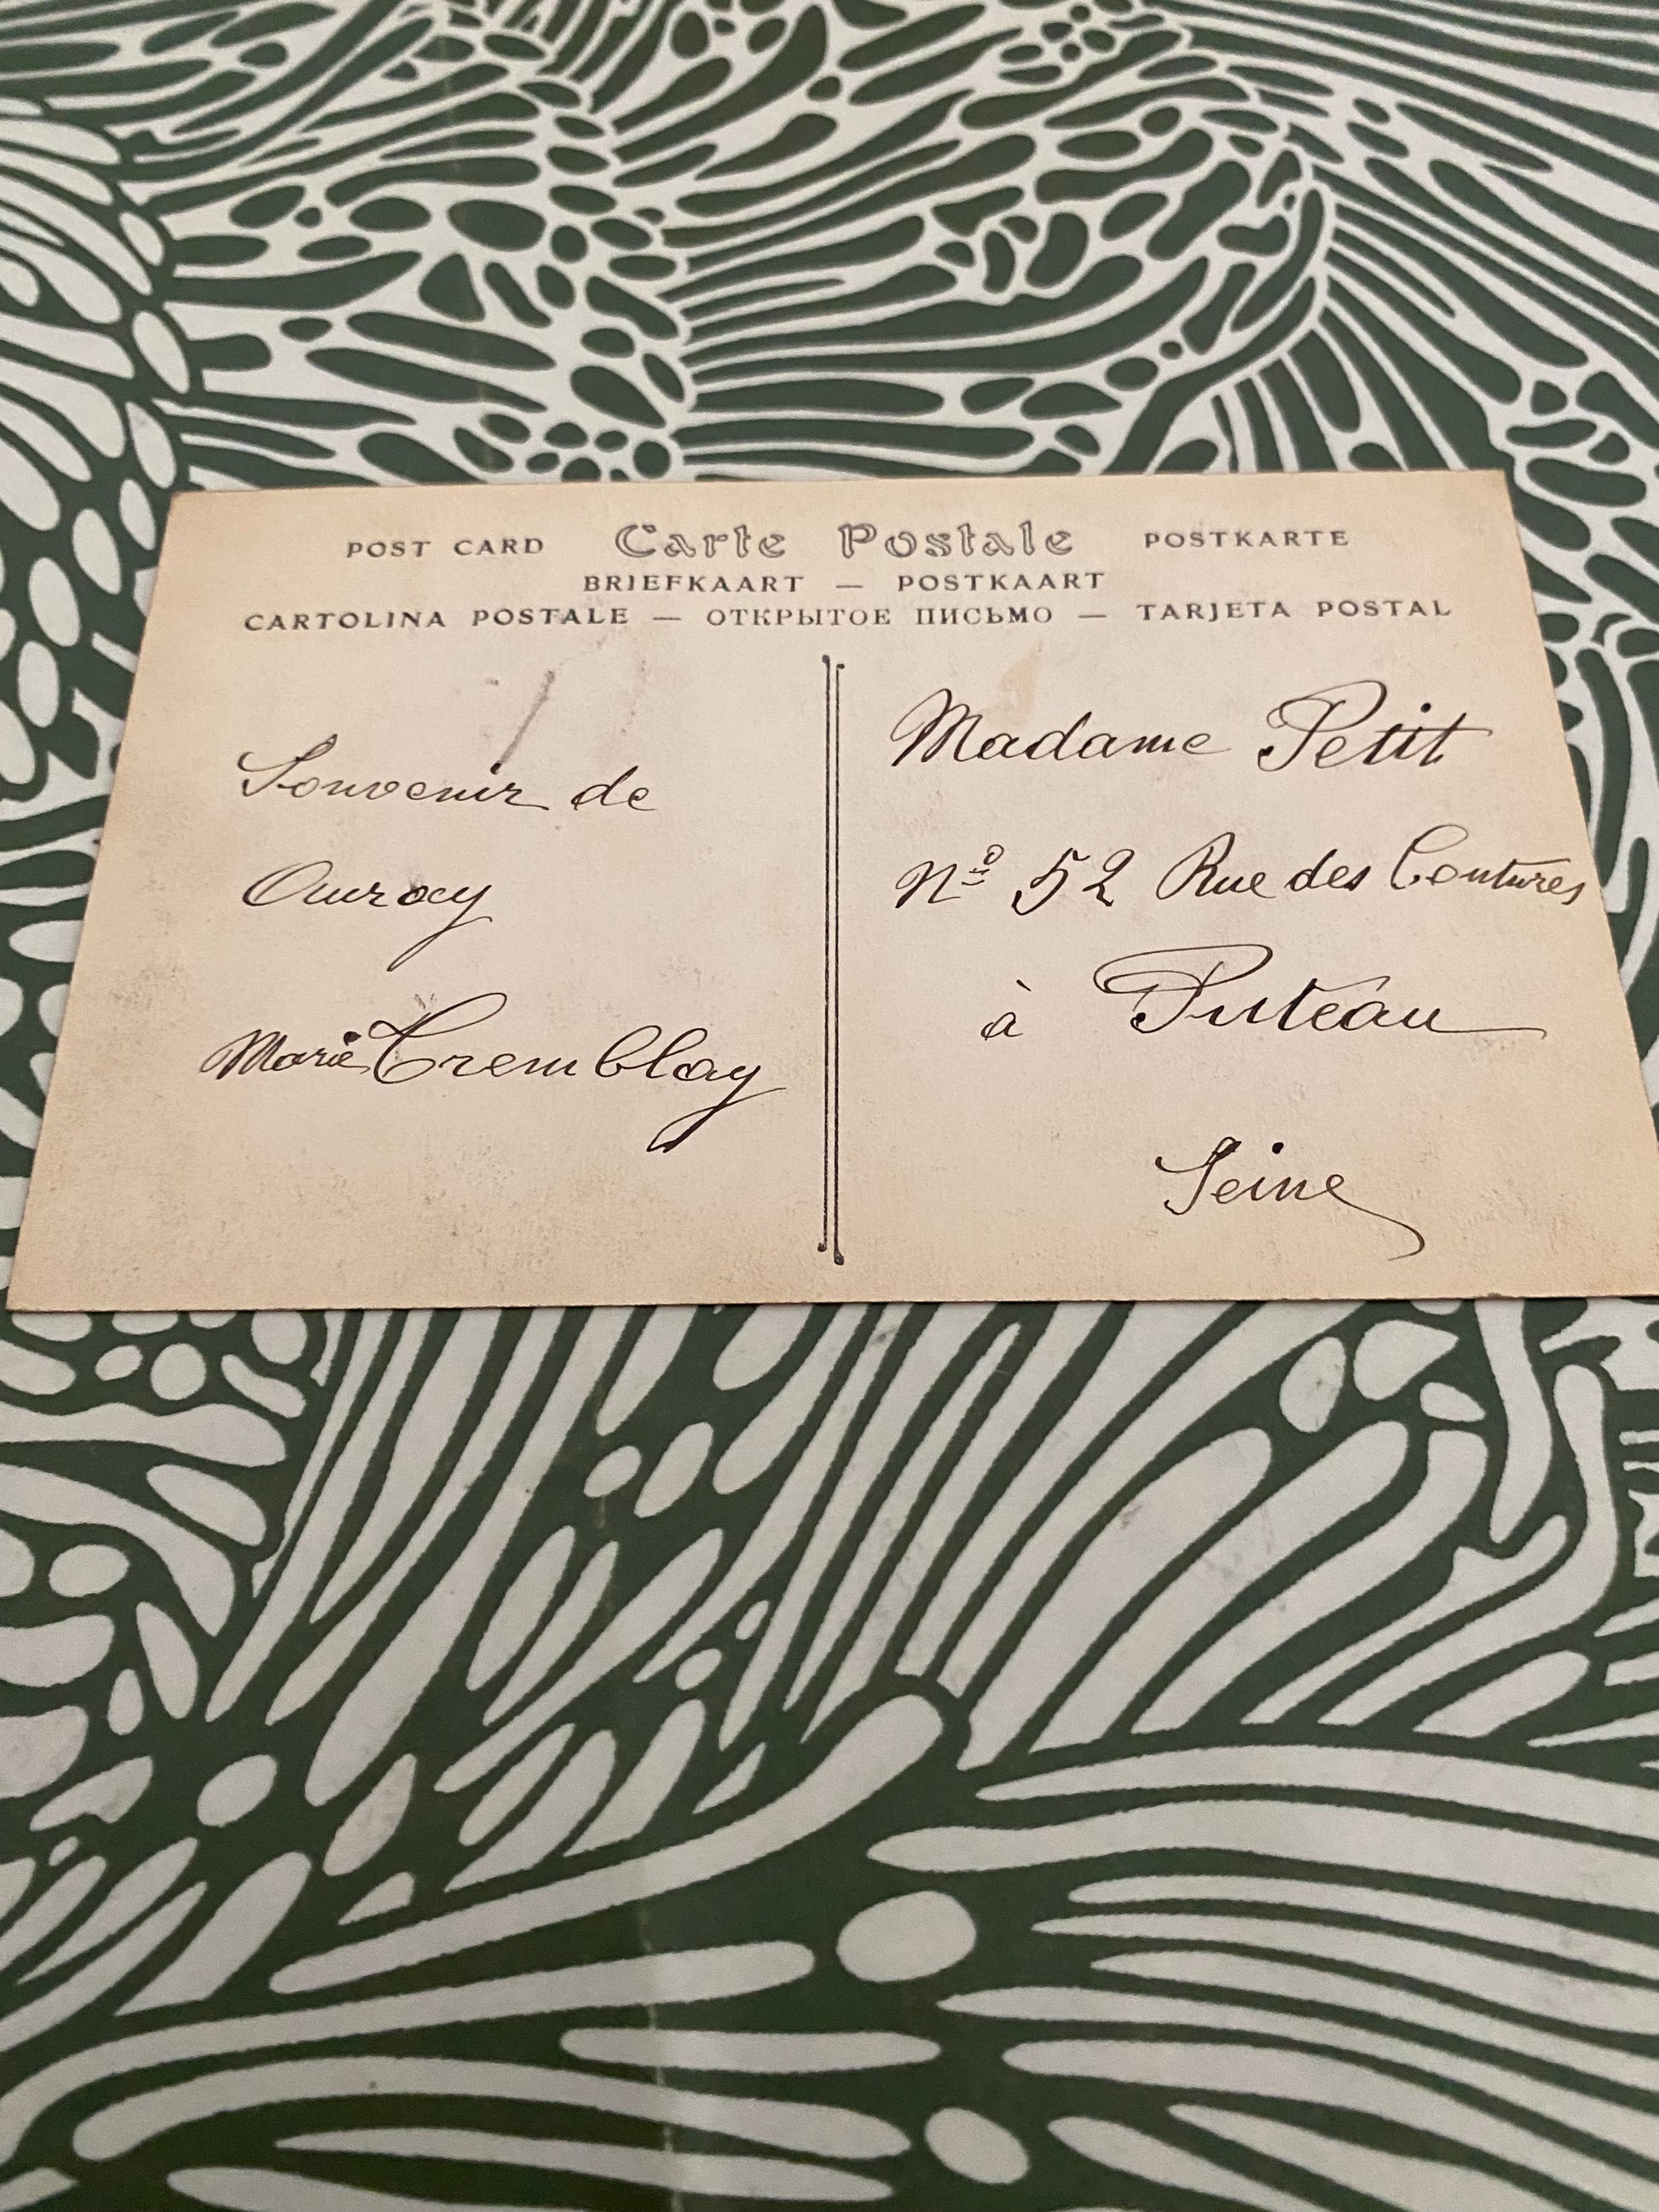 POST CARD Carte Postale POSTKARTE
BRIEFKAART — POSTKAART
CARTOLINA POSTALE — ОТКРЫТОЕ ПИСЬМО — TARJETA POSTAL
Souvenir de
Auray
Marie Tremblay
Madame Petit
Nº 52 Rue des Coutures
à Puteau
Seine